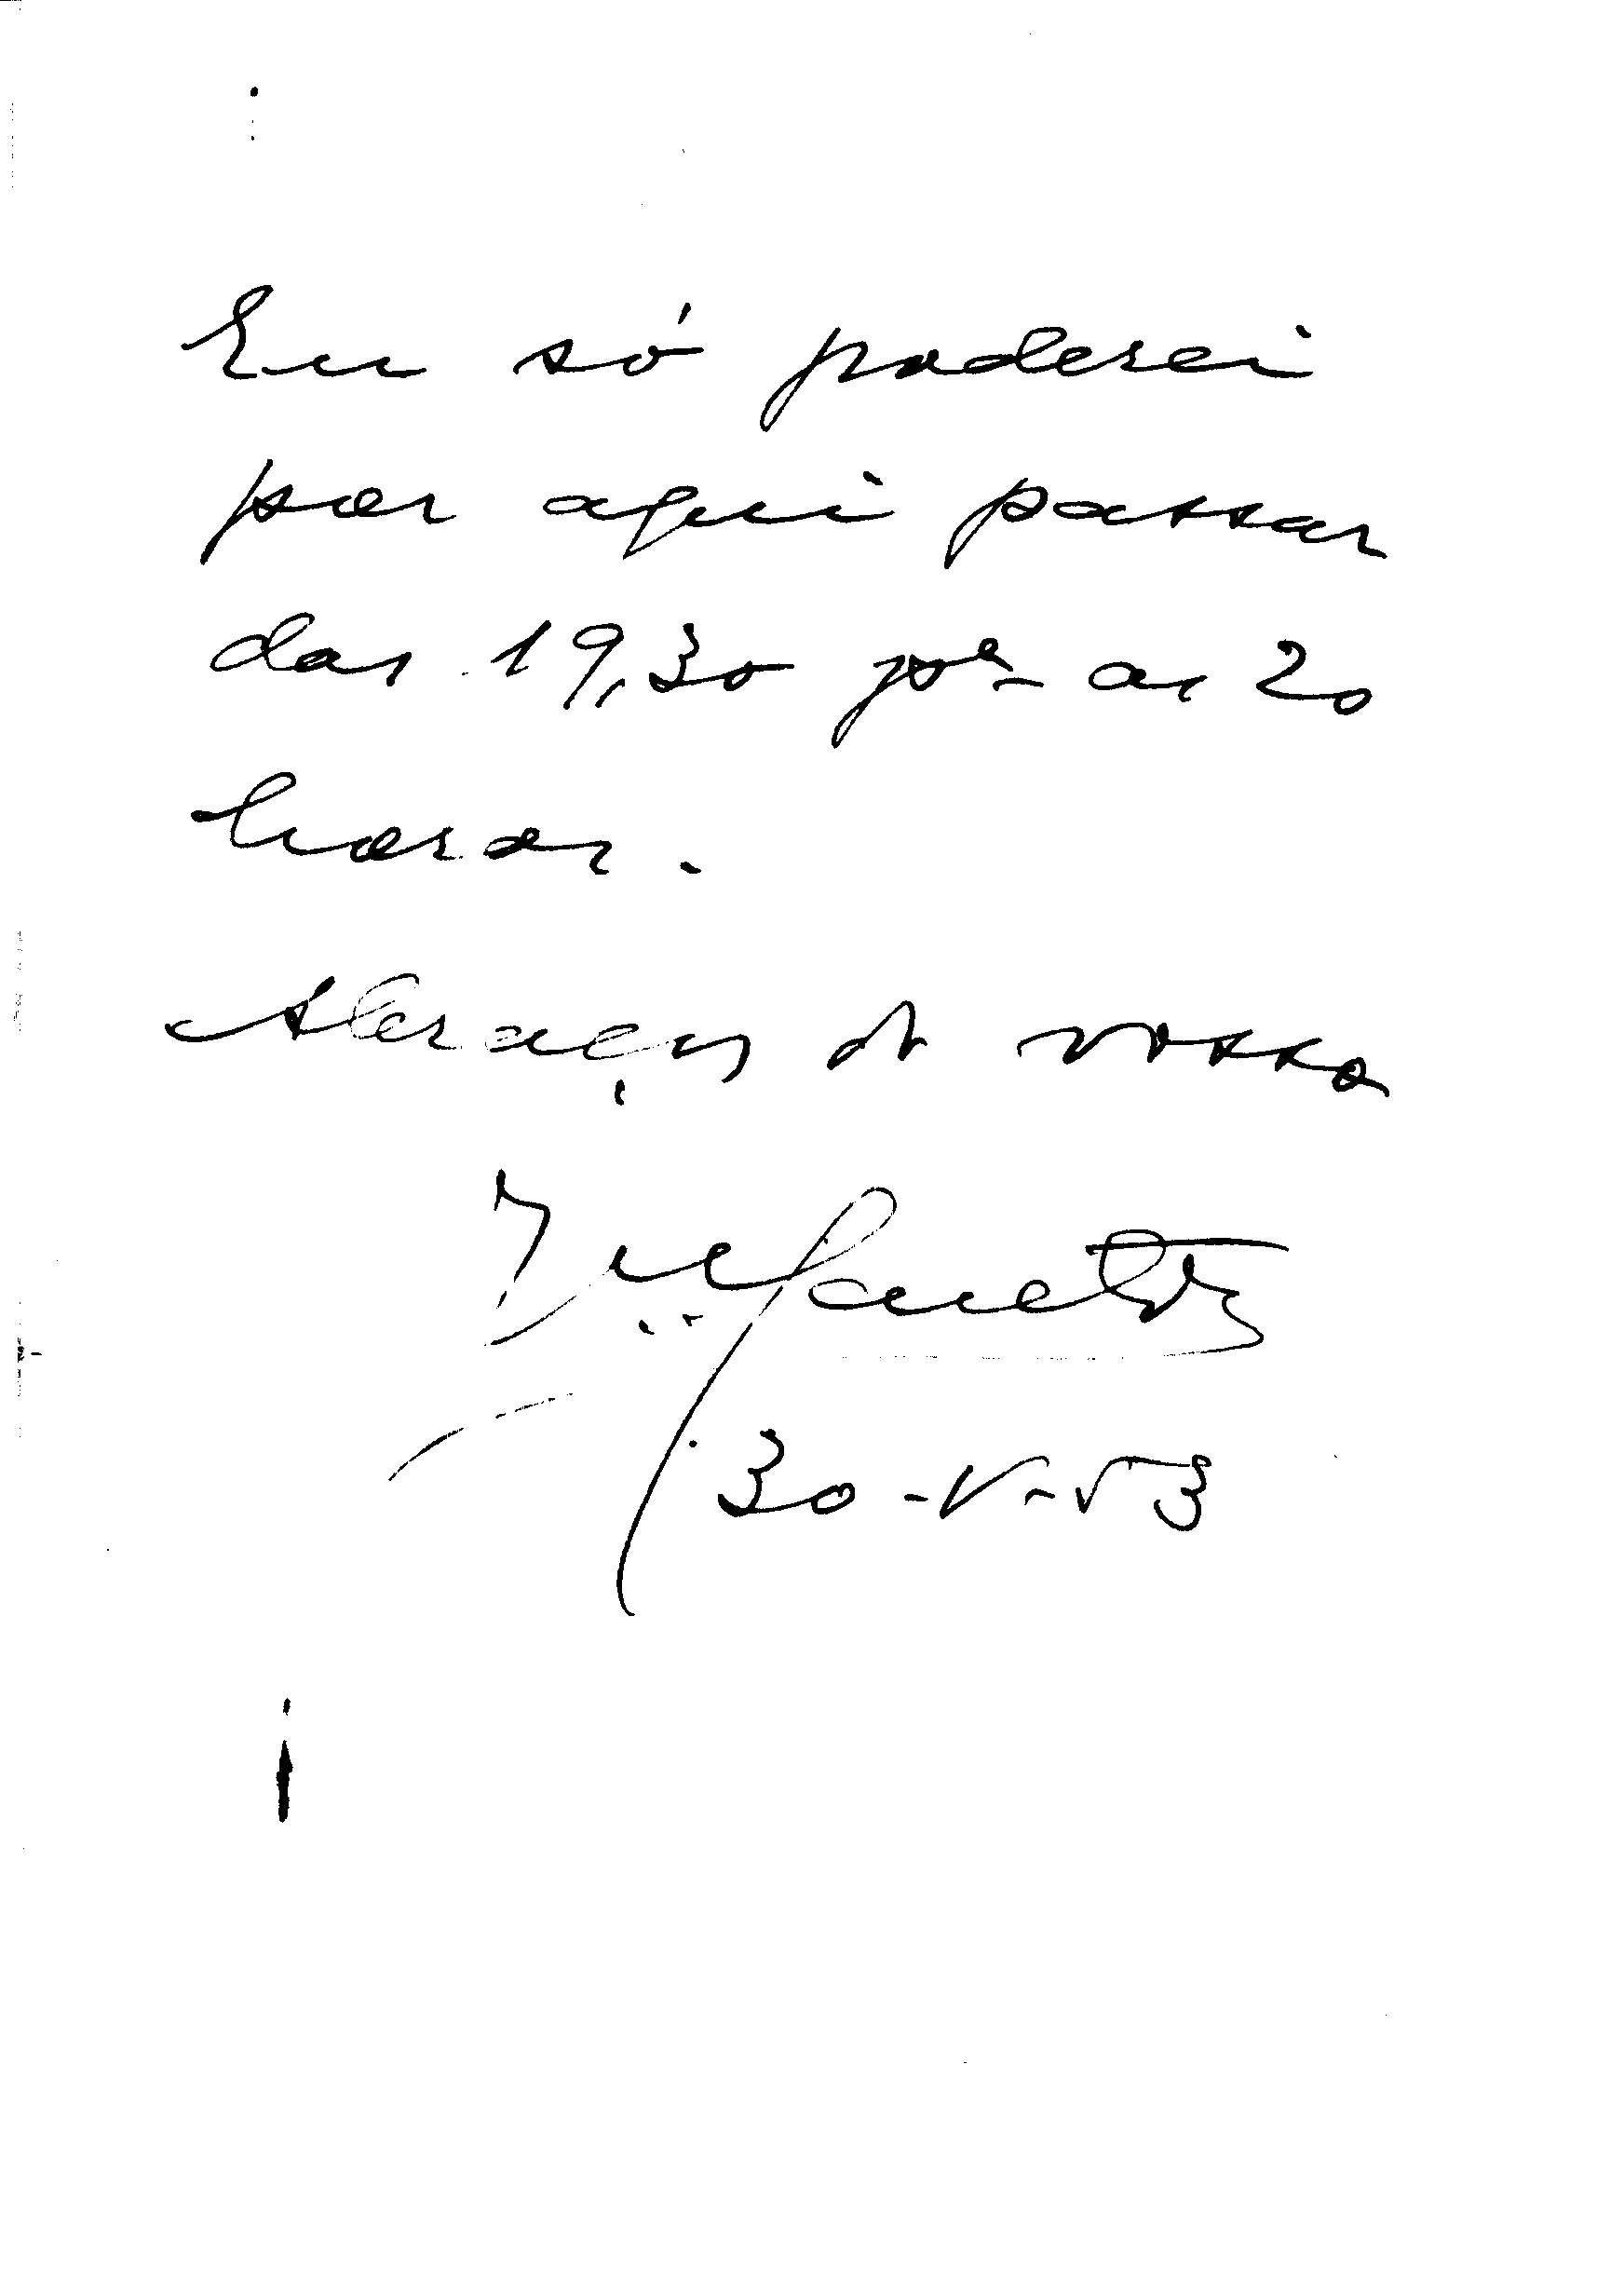 Eu só poderei
por aqui passar
das 19,30 pª as 20
horas.
Abraços do vosso
30-V-53